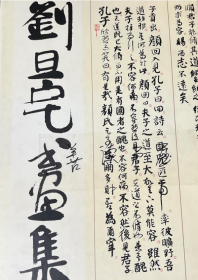 而志不遠矣
子貢出顏回入見孔子曰回詩云匪兕匪虎率彼曠野吾
道非邪吾何為於此顏回曰夫子之道至大故天下莫能容雖然
夫子推而行之不容何病不容然後見君子夫道之不修也是吾醜
也夫道既已大修而不用是有國者之醜也不容何病不容然後見君子
孔子欣然而笑曰有是哉顏氏之子使爾多財吾為爾宰
劉旦宅書畫集